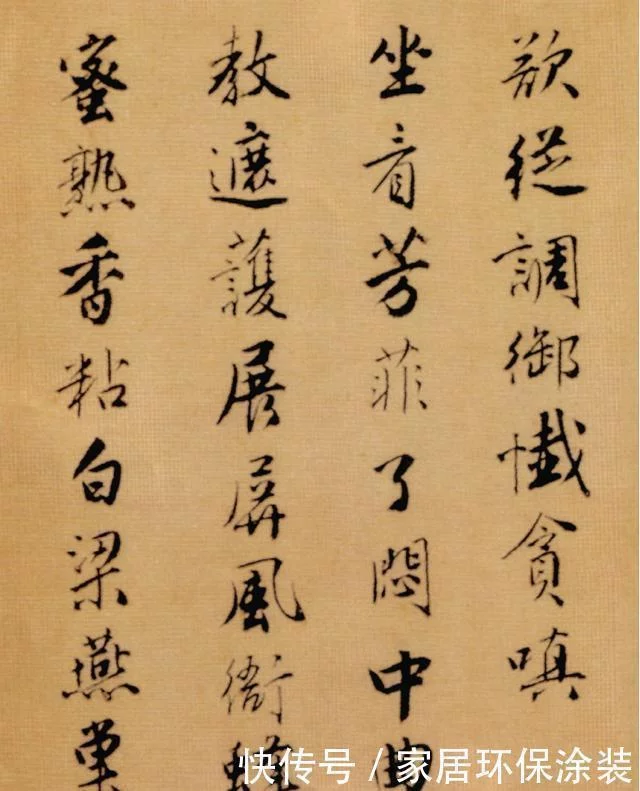 欲從調御懺貪嗔
坐看芳菲了悶中曲
教遮護展屏風衙蜂
蜜熟香粘白梁燕巢
快传号/家居环保涂装